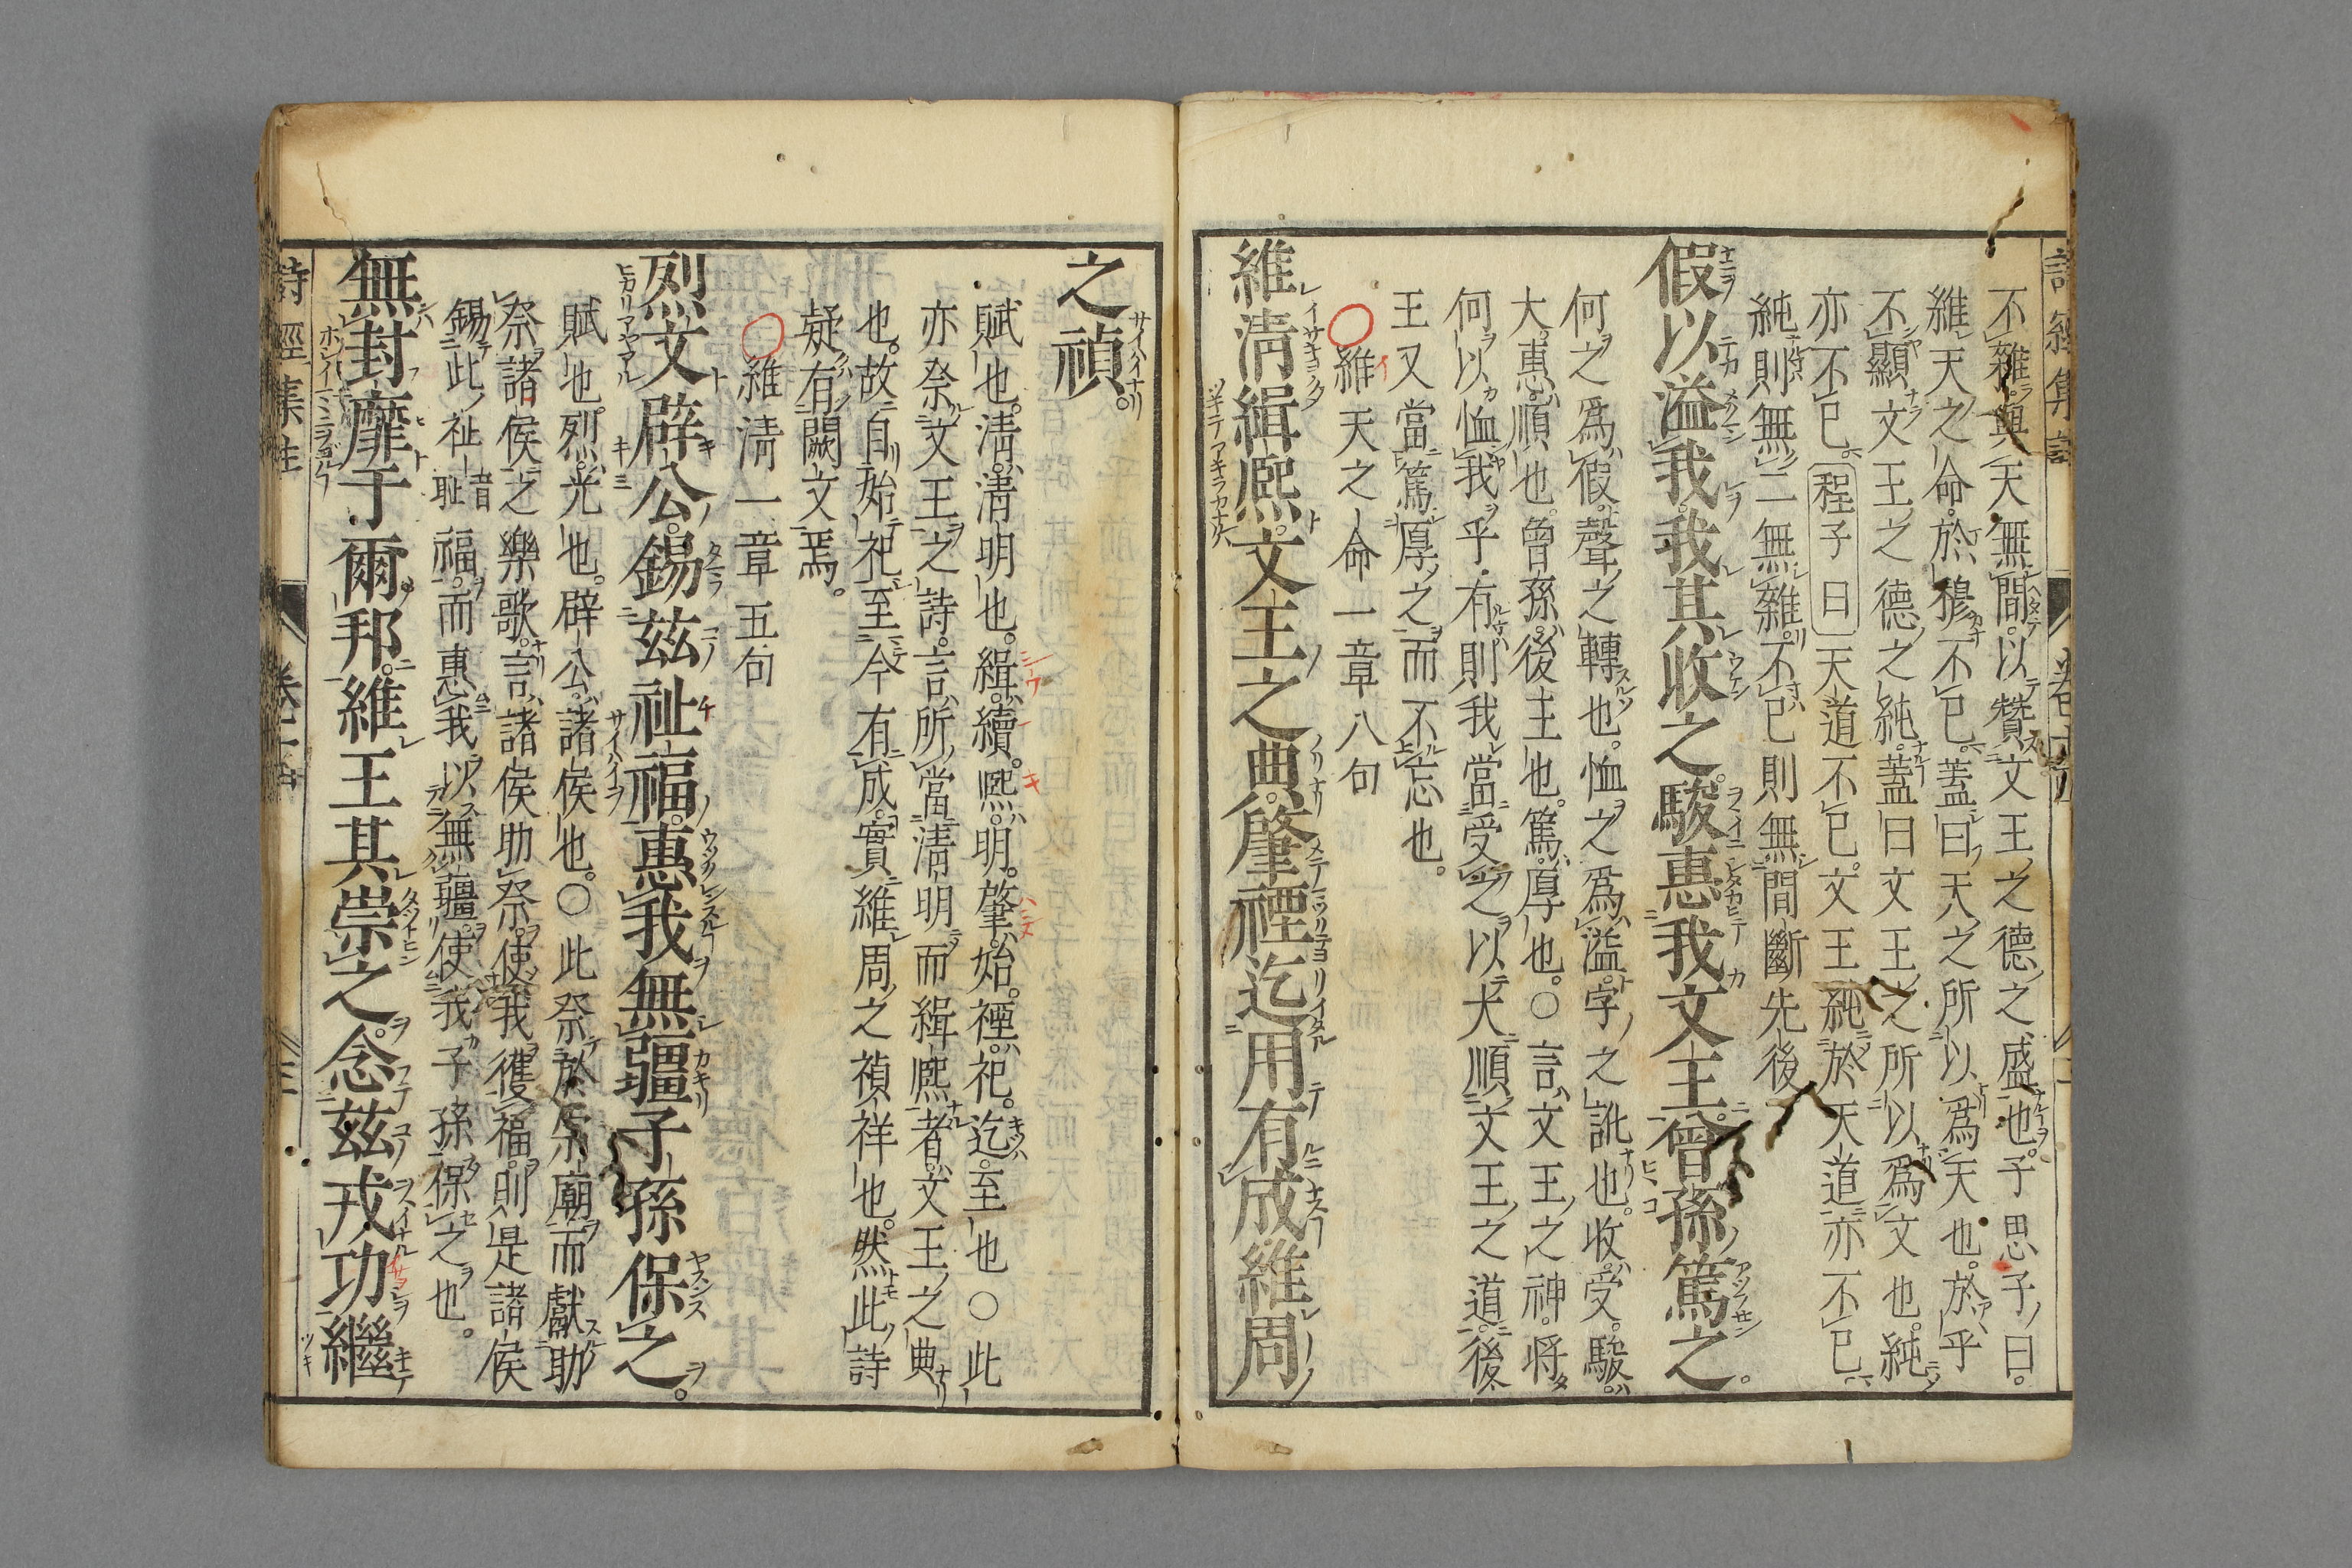 不雜與天無間以贊文王之德之盛也子思子曰
維天之命於穆不已蓋曰天之所以爲天也於乎
不顯文王之德之純蓋曰文王之所以爲文也純
亦不已程子曰天道不已文王純於天道亦不已
純則無二無雜不已則無間斷先後
假以溢我我其收之駿惠我文王曾孫篤之
何之爲假聲之轉也恤之爲溢字之訛也收受駿
大惠順也曾孫後王也篤厚也○言文王之神將
何以恤我乎有則我當受之以大順文王之道後
王又當篤厚之而不忘也
維天之命一章八句
維淸緝熙文王之典肇禋迄用有成維周
之禎
賦也淸淸明也緝續熙明肇始禋祀迄至也○此
亦祭文王之詩言所當淸明而緝熙者文王之典
也故自始祀至今有成實維周之禎祥也然此詩
疑有闕文焉
維淸一章五句
烈文辟公錫茲祉福惠我無疆子孫保之
賦也烈光也辟公諸侯也○此祭於宗廟而獻助
祭諸侯之樂歌言諸侯助祭使我獲福則是諸侯
錫此祉音耻福而惠我以無疆使我子孫保之也
無封靡于爾邦維王其崇之念茲戎功繼
詩經集註